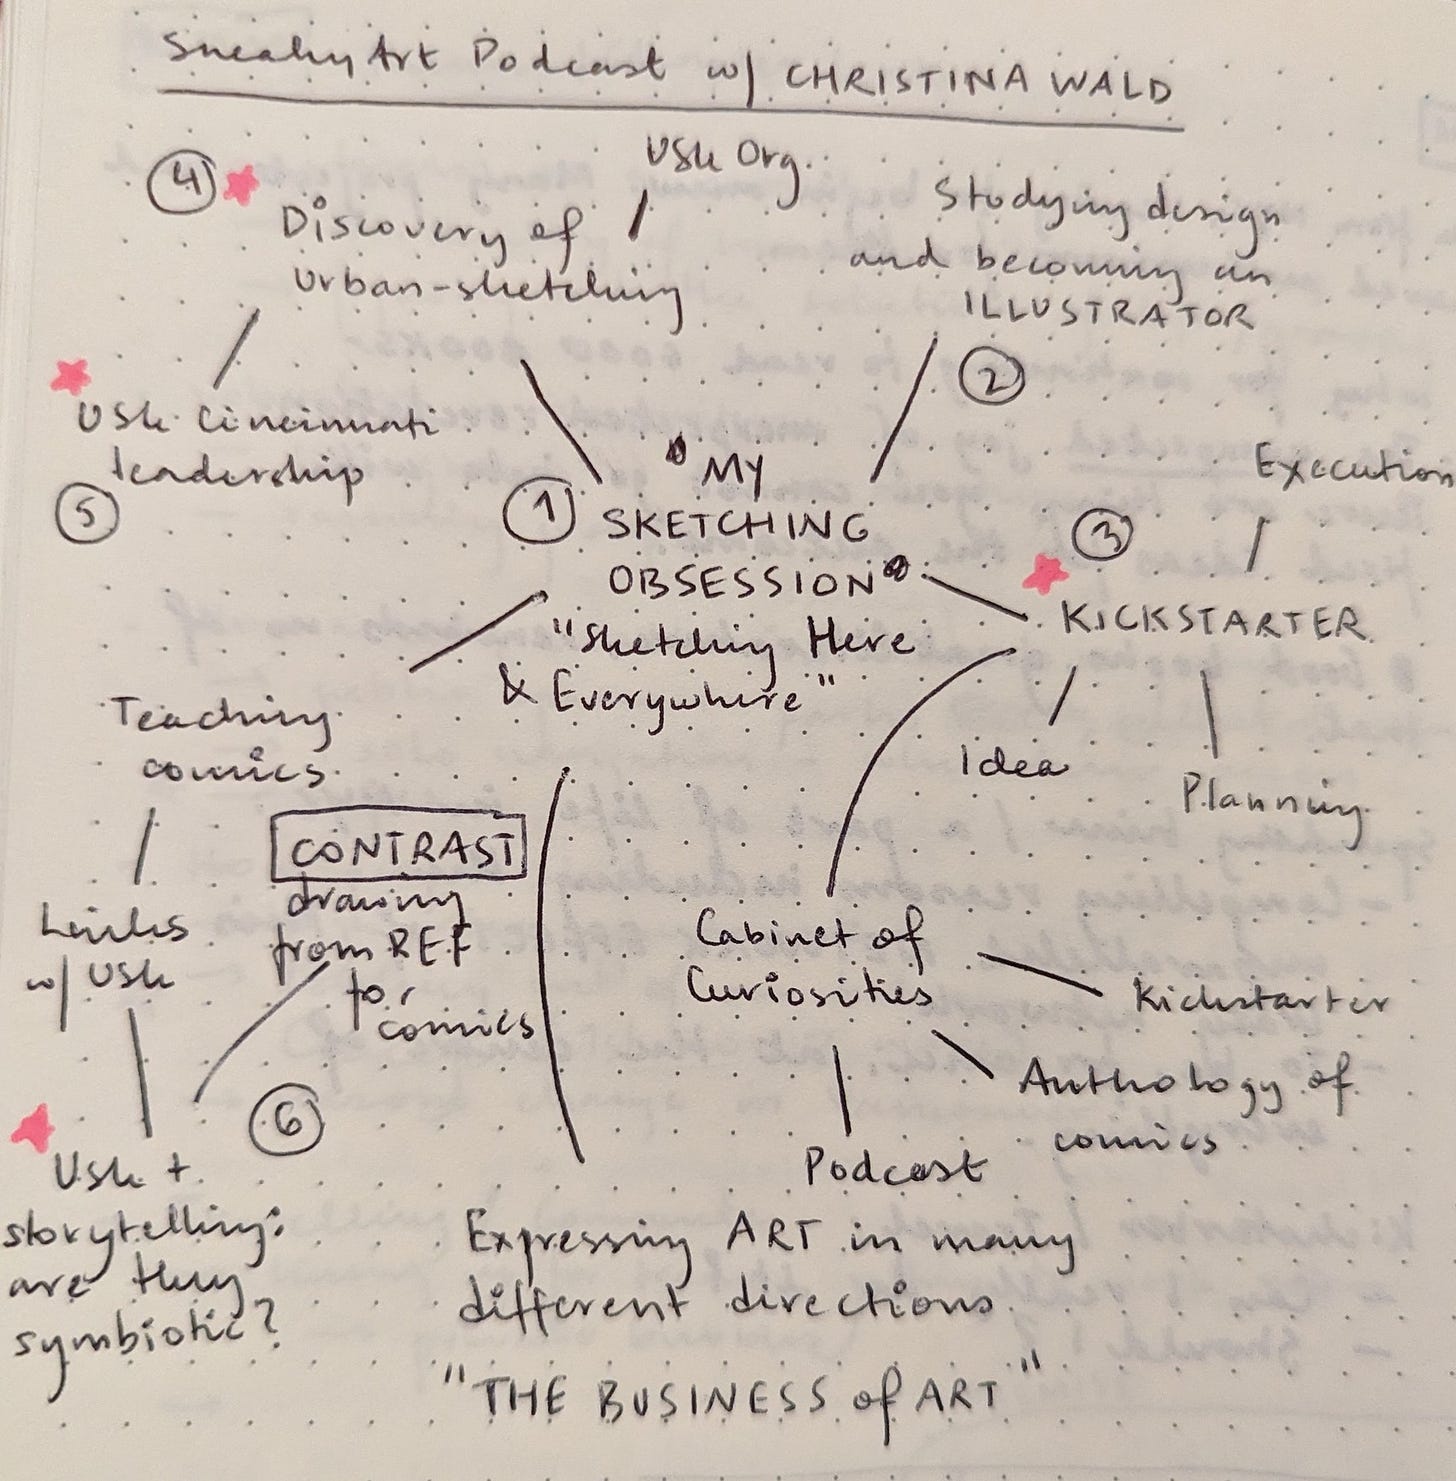 SneakyArt Podcast w/ CHRISTINA WALD
USk Org.
4
Discovery of
urban-sketching
Studying design
and becoming an
ILLUSTRATOR
2
USk Cincinnati
leadership
5
1
"MY
SKETCHING
OBSESSION"
"Sketching Here
& Everywhere"
Execution
3
KICKSTARTER
Idea
Planning
Teaching
comics
CONTRAST
drawing
from REF
to
comics
Links
w/ USk
6
USk +
storytelling:
are they
symbiotic?
Cabinet of
Curiosities
Kickstarter
Anthology of
comics
Podcast
Expressing ART in many
different directions
"THE BUSINESS of ART"